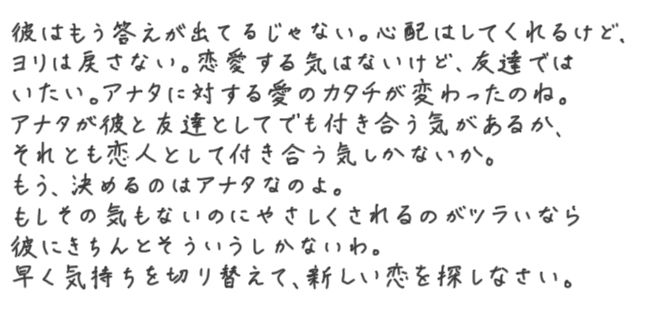 彼はもう答えが出てるじゃない。心配はしてくれるけど、
ヨリは戻さない。恋愛する気はないけど、友達では
いたい。アナタに対する愛のカタチが変わったのね。
アナタが彼と友達としてでも付き合う気があるか、
それとも恋人として付き合う気しかないか。
もう、決めるのはアナタなのよ。
もしその気もないのにやさしくされるのがツラいなら
彼にきちんとそういうしかないわ。
早く気持ちを切り替えて、新しい恋を探しなさい。